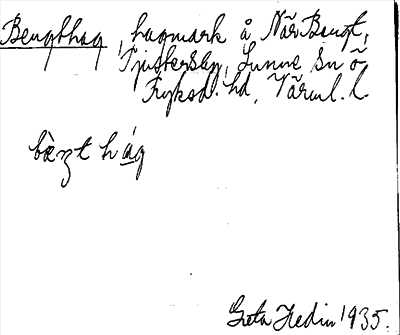 Bengthag, hagmark å När Bengt,
Tjustersby, Sunne sn ö.
Fryksd. hd, Värml. l.
bèŋt hág
Greta Hedin 1935.